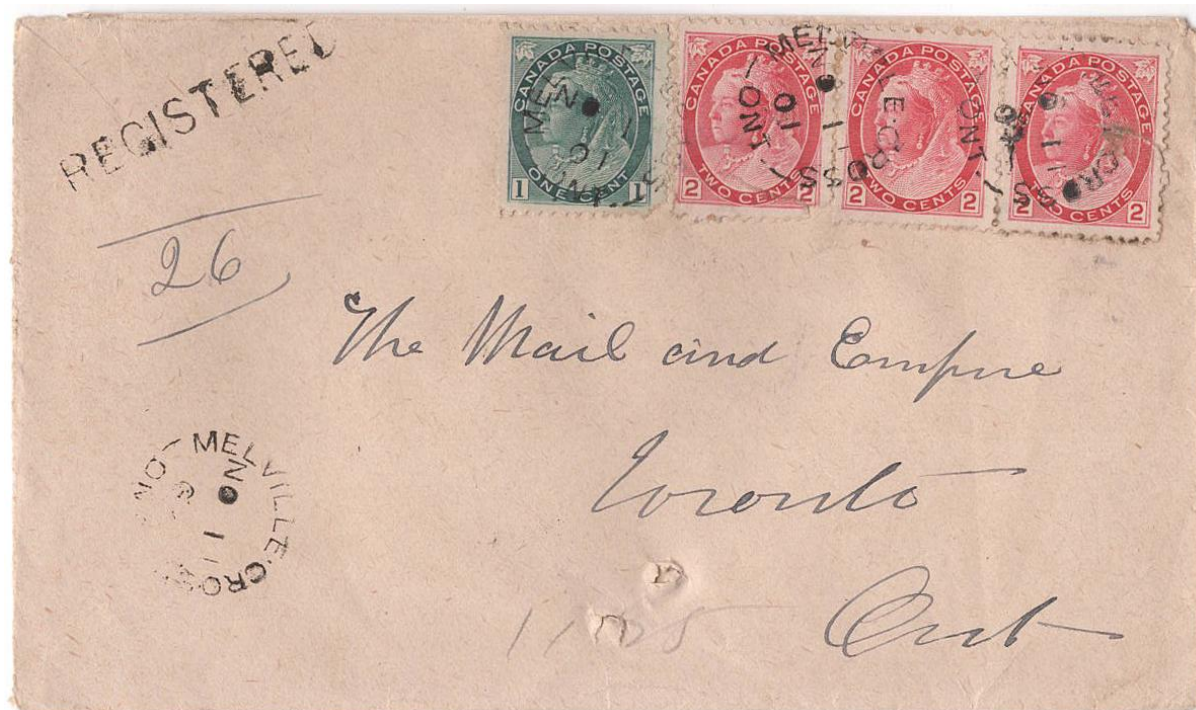 REGISTERED
CANADA POSTAGE
1 ONE CENT 1
CANADA POSTAGE
2 TWO CENTS 2
CANADA POSTAGE
2 TWO CENTS 2
CANADA POSTAGE
2 TWO CENTS 2
26
The Mail and Empire
Toronto
Ont
MELVILLE CROSS
ONT
NO
1